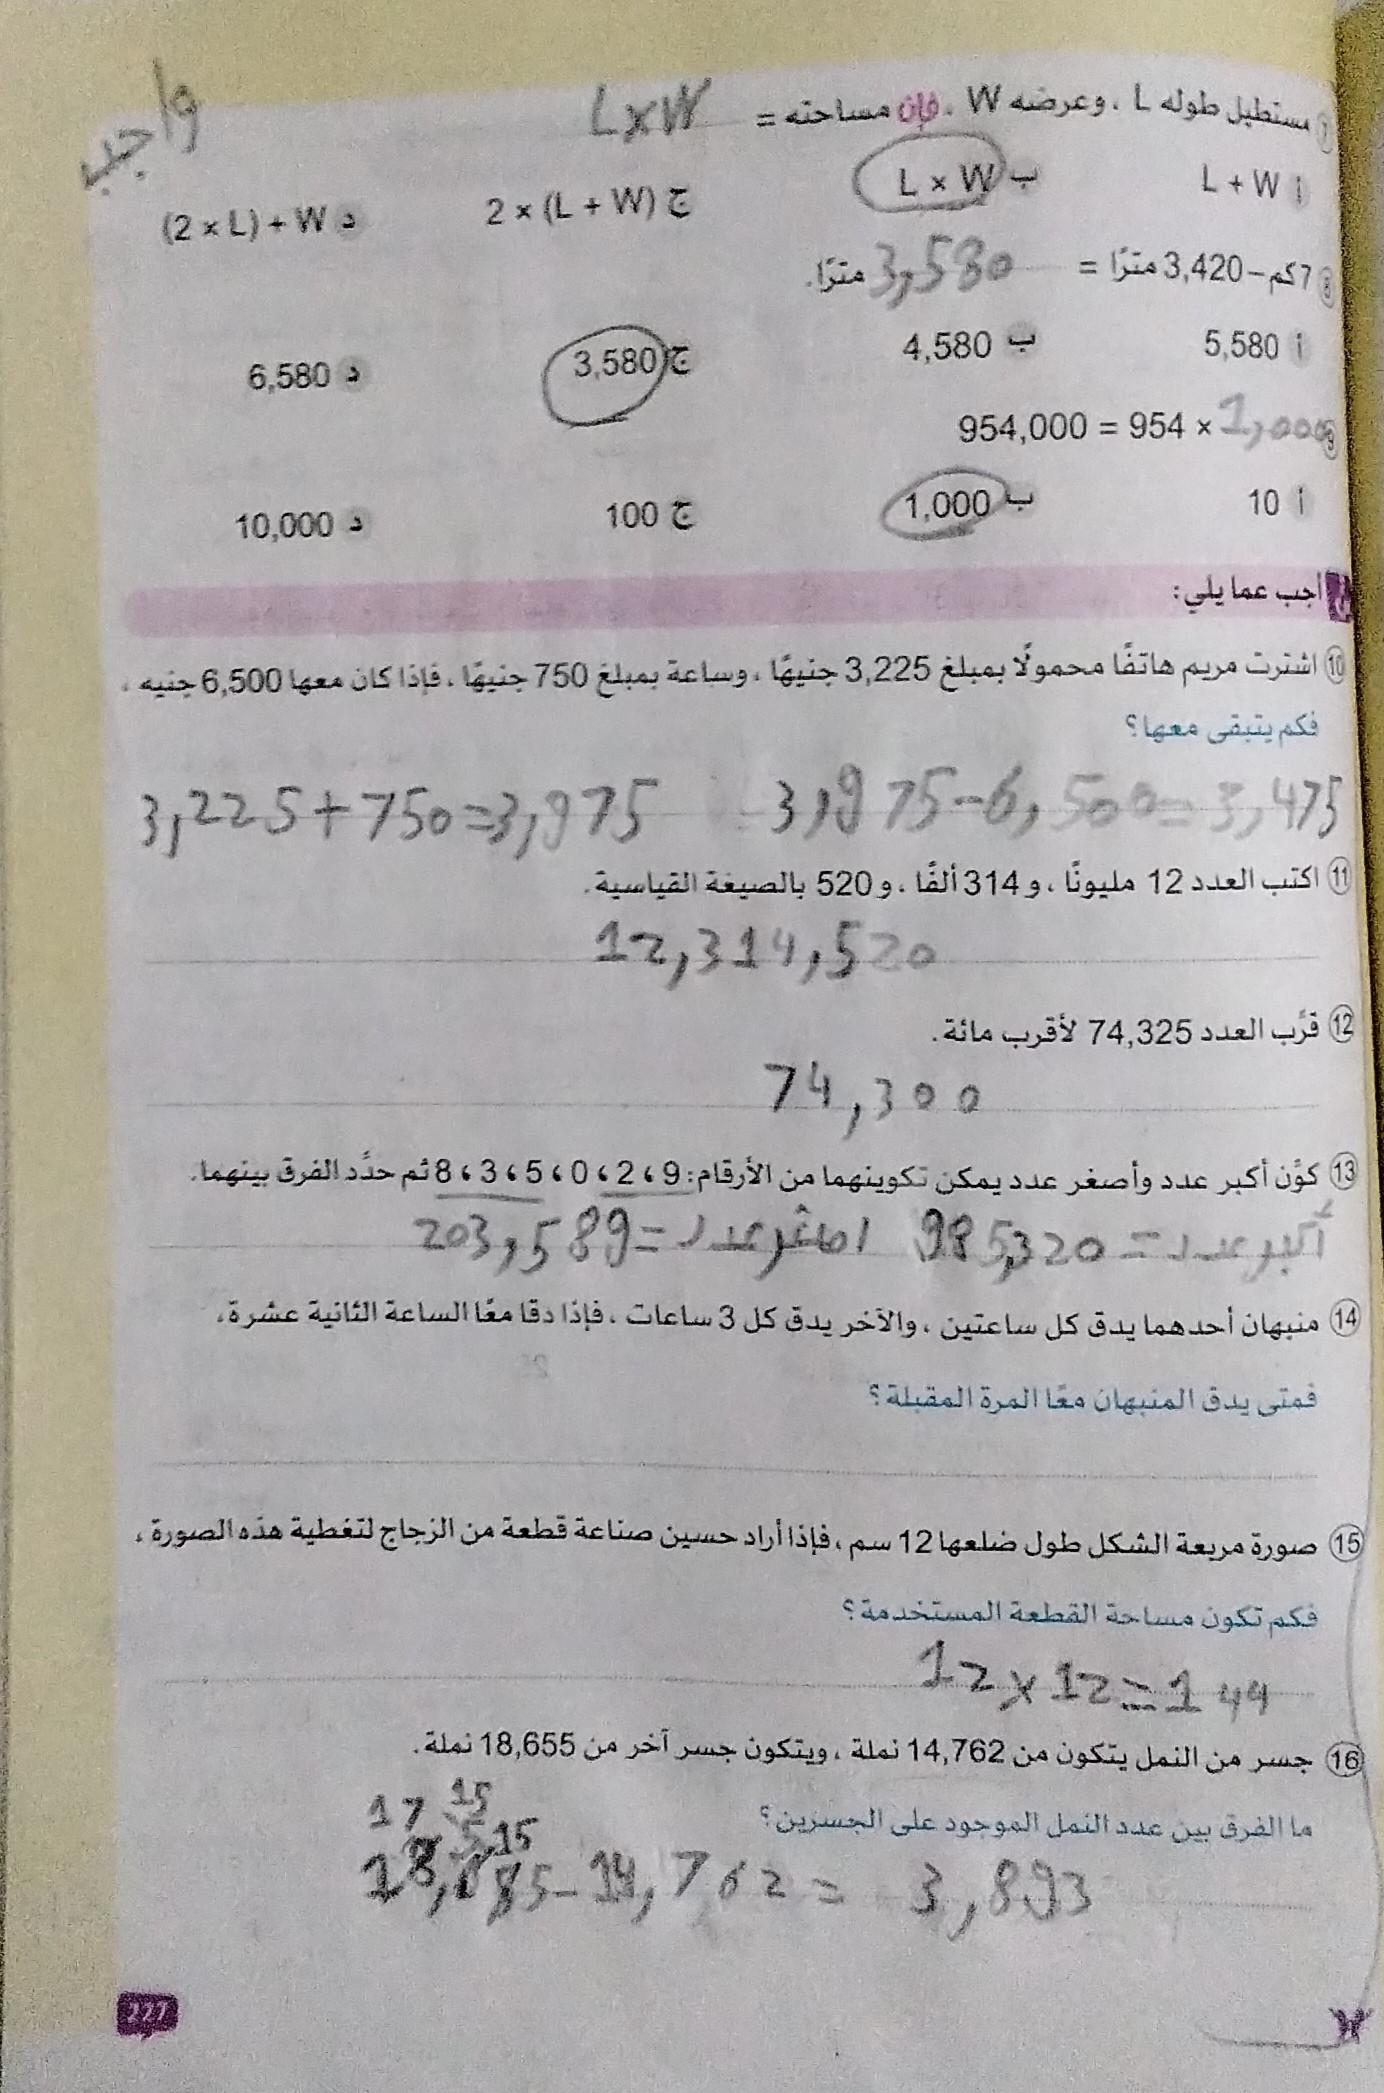 واجب
7 مستطيل طوله L ، وعرضه W ، فإن مساحته = L×W
أ L + W ب L × W ج 2 × (L + W) د (2 × L) + W
8 7 كم – 3,420 مترًا = 3,580 مترًا.
أ 5,580 ب 4,580 ج 3,580 د 6,580
9 954,000 = 954 × 1,000
أ 10 ب 1,000 ج 100 د 10,000
أجب عما يلي:
10 اشترت مريم هاتفًا محمولًا بمبلغ 3,225 جنيهًا ، وساعة بمبلغ 750 جنيهًا ، فإذا كان معها 6,500 جنيه ،
فكم يتبقى معها؟
3,225+750=3,975 3,975-6,500=3,475
11 اكتب العدد 12 مليونًا ، و 314 ألفًا ، و 520 بالصيغة القياسية.
12,314,520
12 قرِّب العدد 74,325 لأقرب مائة.
74,300
13 كوِّن أكبر عدد وأصغر عدد يمكن تكوينهما من الأرقام: 9 ، 2 ، 0 ، 5 ، 3 ، 8 ثم حدِّد الفرق بينهما.
أكبر عدد = 985,320 اصغر عدد = 203,589
14 منبهان أحدهما يدق كل ساعتين ، والآخر يدق كل 3 ساعات ، فإذا دقا معًا الساعة الثانية عشرة،
فمتى يدق المنبهان معًا المرة المقبلة؟
15 صورة مربعة الشكل طول ضلعها 12 سم ، فإذا أراد حسين صناعة قطعة من الزجاج لتغطية هذه الصورة ،
فكم تكون مساحة القطعة المستخدمة؟
12×12=144
16 جسر من النمل يتكون من 14,762 نملة ، ويتكون جسر آخر من 18,655 نملة.
ما الفرق بين عدد النمل الموجود على الجسرين؟
17 15
15
-14,762 = 3,893
227